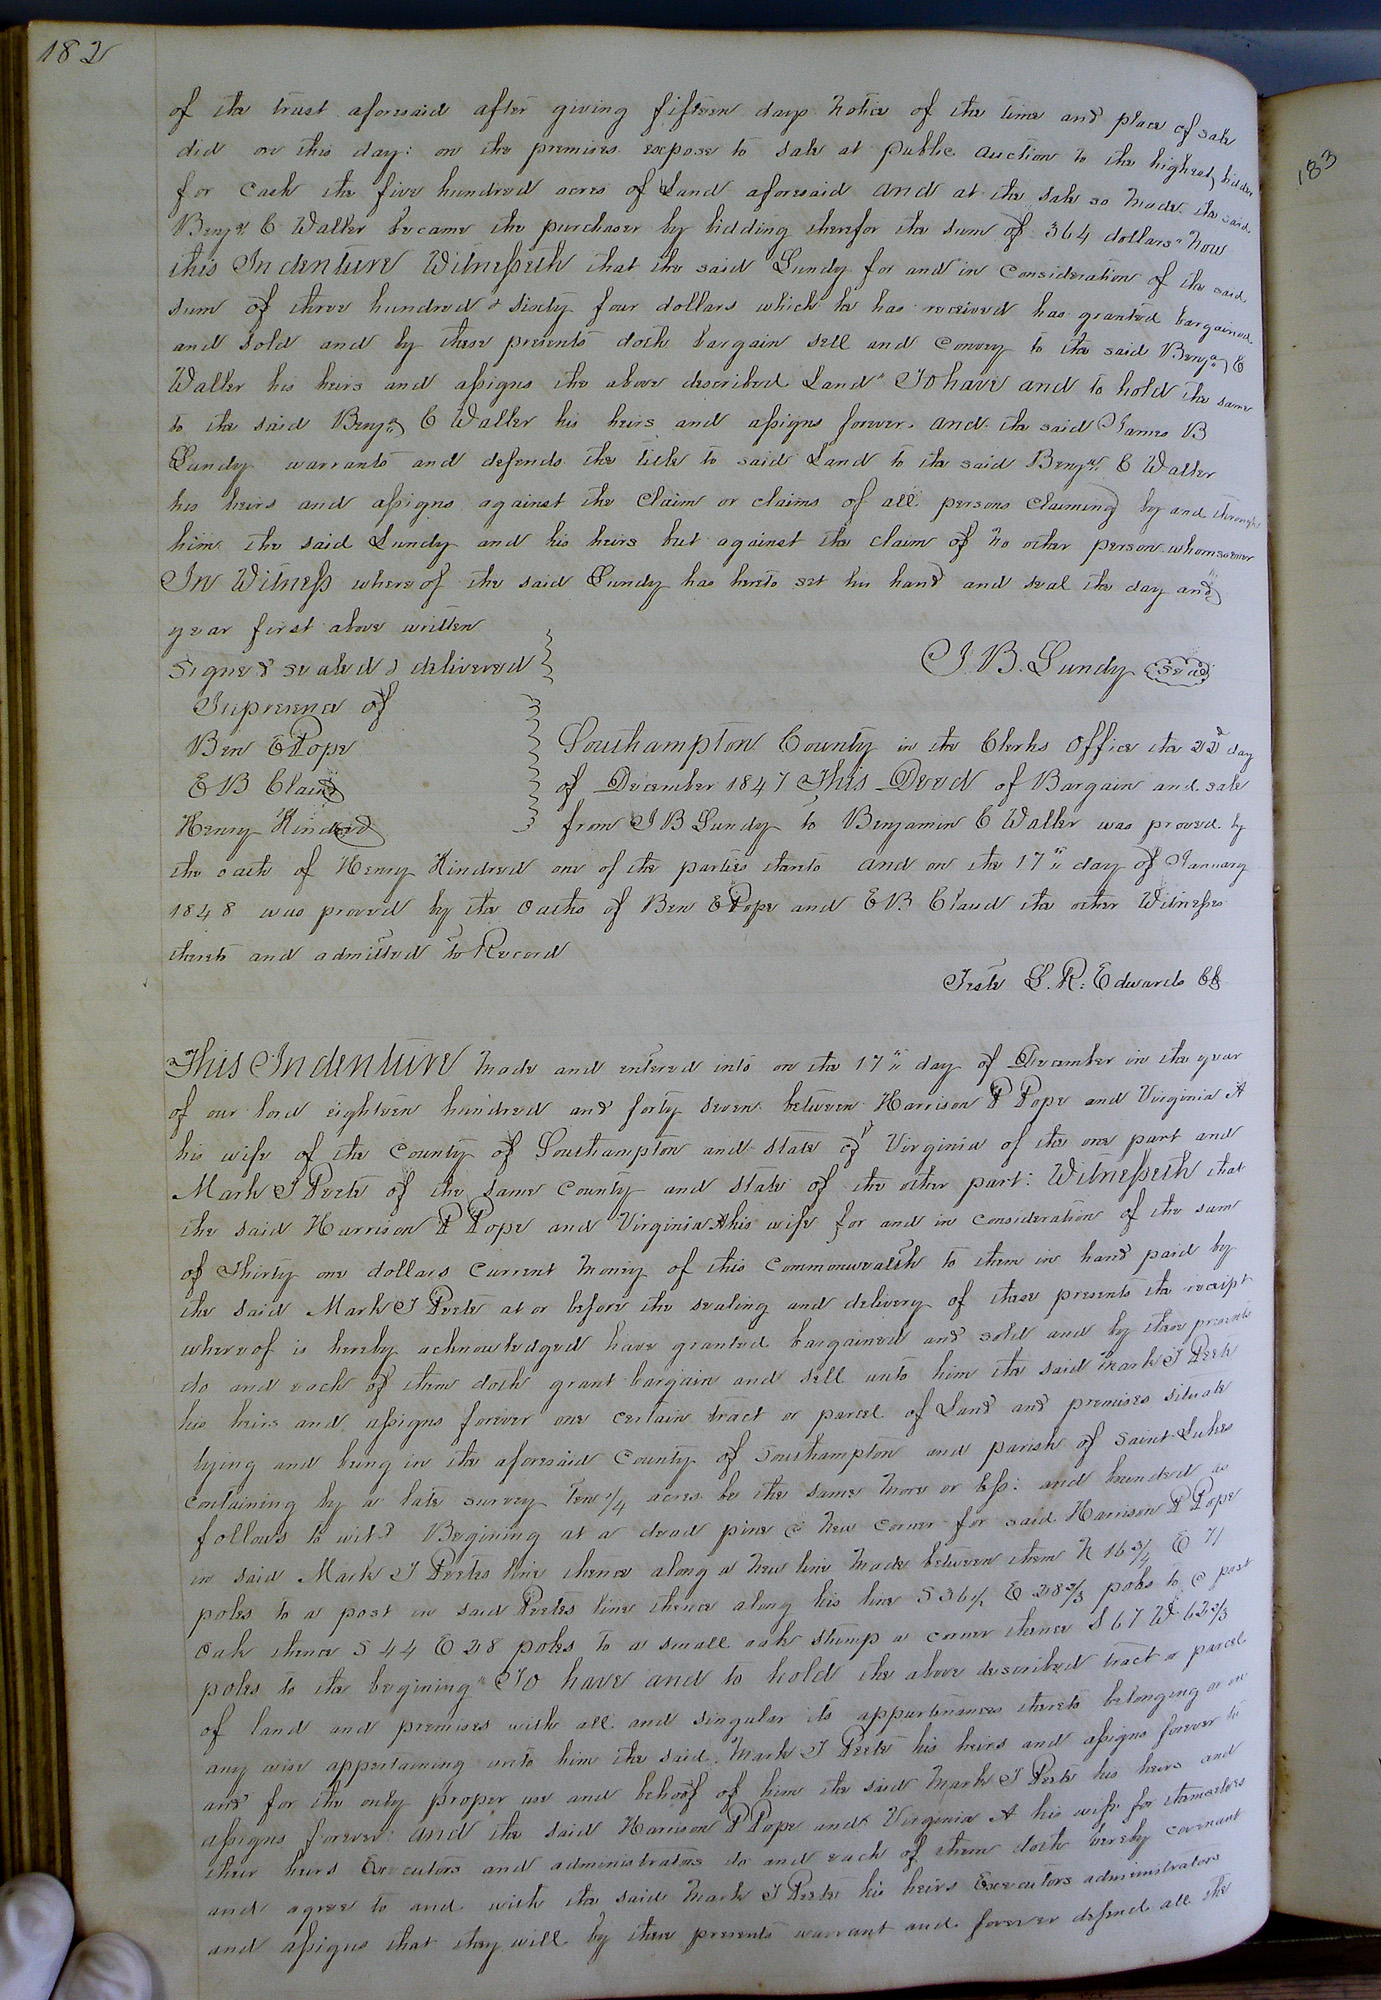 182
of the trust aforesaid after giving fifteen days notice of the time and place of sale
did on this day: on the premises expose to sale at public auction to the highest bidder
for cash the five hundred acres of Land aforesaid and at the sale so made the said
Benjn C Waller became the purchaser by bidding therefor the sum of 364 dollars" now
this Indenture Witnesseth that the said Lundy for and in consideration of the said
sum of three hundred & sixty four dollars which he has received has granted bargained
and sold and by these presents doth bargain sell and convey to the said Benjn C
Waller his heirs and assigns the above described Land" To have and to hold the same
to the said Benjn C Waller his heirs and assigns forever. and the said James B
Lundy warrants and defends the title to said Land to the said Benjn C Waller
his heirs and assigns against the claim or claims of all persons claiming by and through
him the said Lundy and his heirs but against the claim of no other person whomsoever
In Witness whereof the said Lundy has hereto set his hand and seal the day and
year first above written
signed sealed & delivered
J. B. Lundy seal
In presence of
Ben E Pope
E B Claud
Henry Kindred
Southampton County in the Clerks Office the 22d day
of December 1847 This Deed of Bargain and sale
from J B Lundy to Benjamin C Waller was proved by
the oath of Henry Kindred one of the parties thereto and on the 17th day of January
1848 was proved by the oaths of Ben E Pope and E B Claud the other Witnesses
thereto and admitted to Record
Teste L. R. Edwards CC
This Indenture made and entered into on the 17th day of December in the year
of our lord eighteen hundred and forty seven between Harrison P Pope and Virginia A
his wife of the County of Southampton and state of Virginia of the one part and
Mark J Peete of the same County and state of the other part: Witnesseth that
the said Harrison P Pope and Virginia A his wife for and in consideration of the sum
of Thirty one dollars current money of this commonwealth to them in hand paid by
the said Mark J Peete at or before the sealing and delivery of these presents the receipt
whereof is hereby acknowledged have granted bargained and sold and by these presents
do and each of them doth grant bargain and sell unto him the said Mark J Peete
his heirs and assigns forever one certain tract or parcel of Land and premises situate
lying and being in the aforesaid County of Southampton and parish of Saint Lukes
containing by a late survey Ten 1/4 acres be the same more or less: and bounded as
follows to wit: Begining at a dead pine a new corner for said Harrison P Pope
in said Mark J Peetes line thence along a new line made between them N 16 3/4 E 71
poles to a post in said Peetes line thence along his line S 36 1/2 E 28 2/3 poles to a post
oak thence S 44 E 28 poles to a small oak stump a corner thence S 67 W 62 2/3
poles to the begining" To have and to hold the above described tract or parcel
of land and premises with all and singular its appurtenances thereto belonging or in
any wise appertaining unto him the said Mark J Peete his heirs and assigns forever to
and for the only proper use and behoof of him the said Mark J Peete his heirs and
assigns forever: and the said Harrison P Pope and Virginia A his wife for themselves
their heirs Executors and administrators do and each of them doth hereby covenant
and agree to and with the said Mark J Peete his heirs Executors administrators
and assigns that they will by these presents warrant and forever defend all the
183